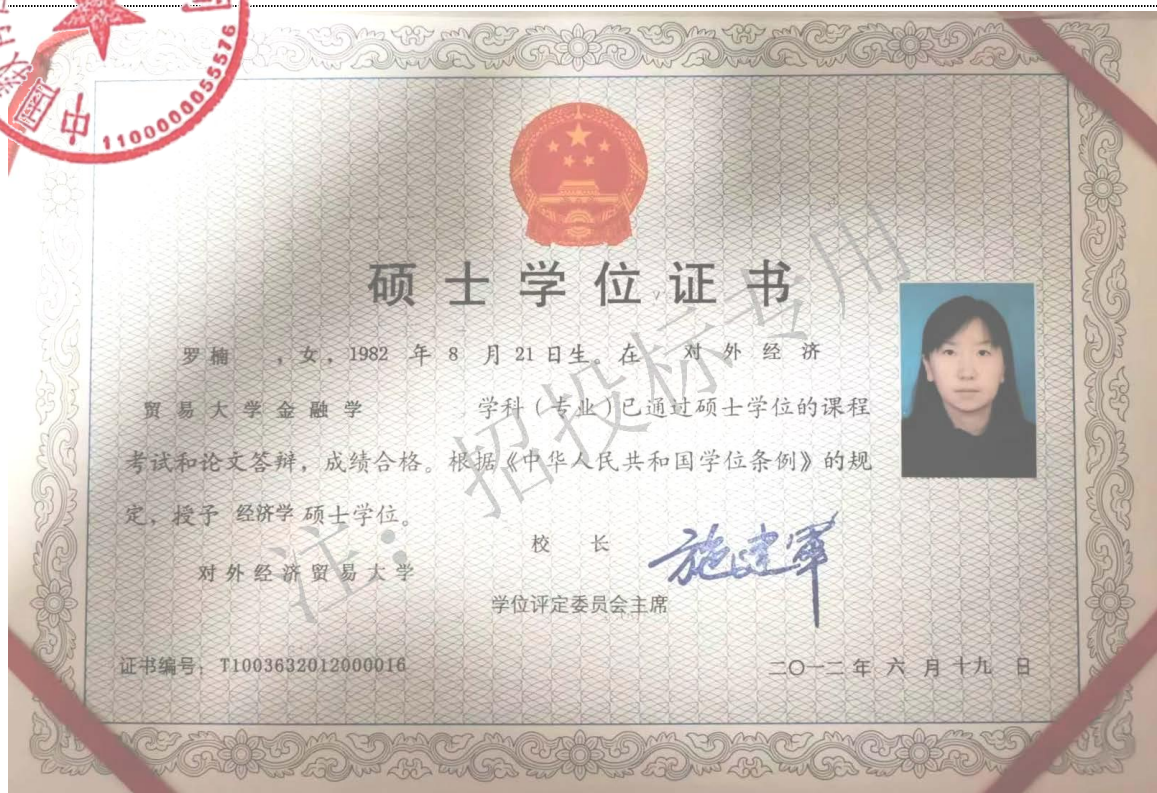 中
1100000055576
硕士学位证书
罗楠 ，女，1982 年 8 月 21 日生。在 对外经济
贸易大学金融学 学科（专业）已通过硕士学位的课程
考试和论文答辩，成绩合格。根据《中华人民共和国学位条例》的规
定，授予 经济学 硕士学位。
校 长 施建军
对外经济贸易大学
学位评定委员会主席
证书编号：T1003632012000016
二〇一二年 六 月 十九 日
注：招投标专用